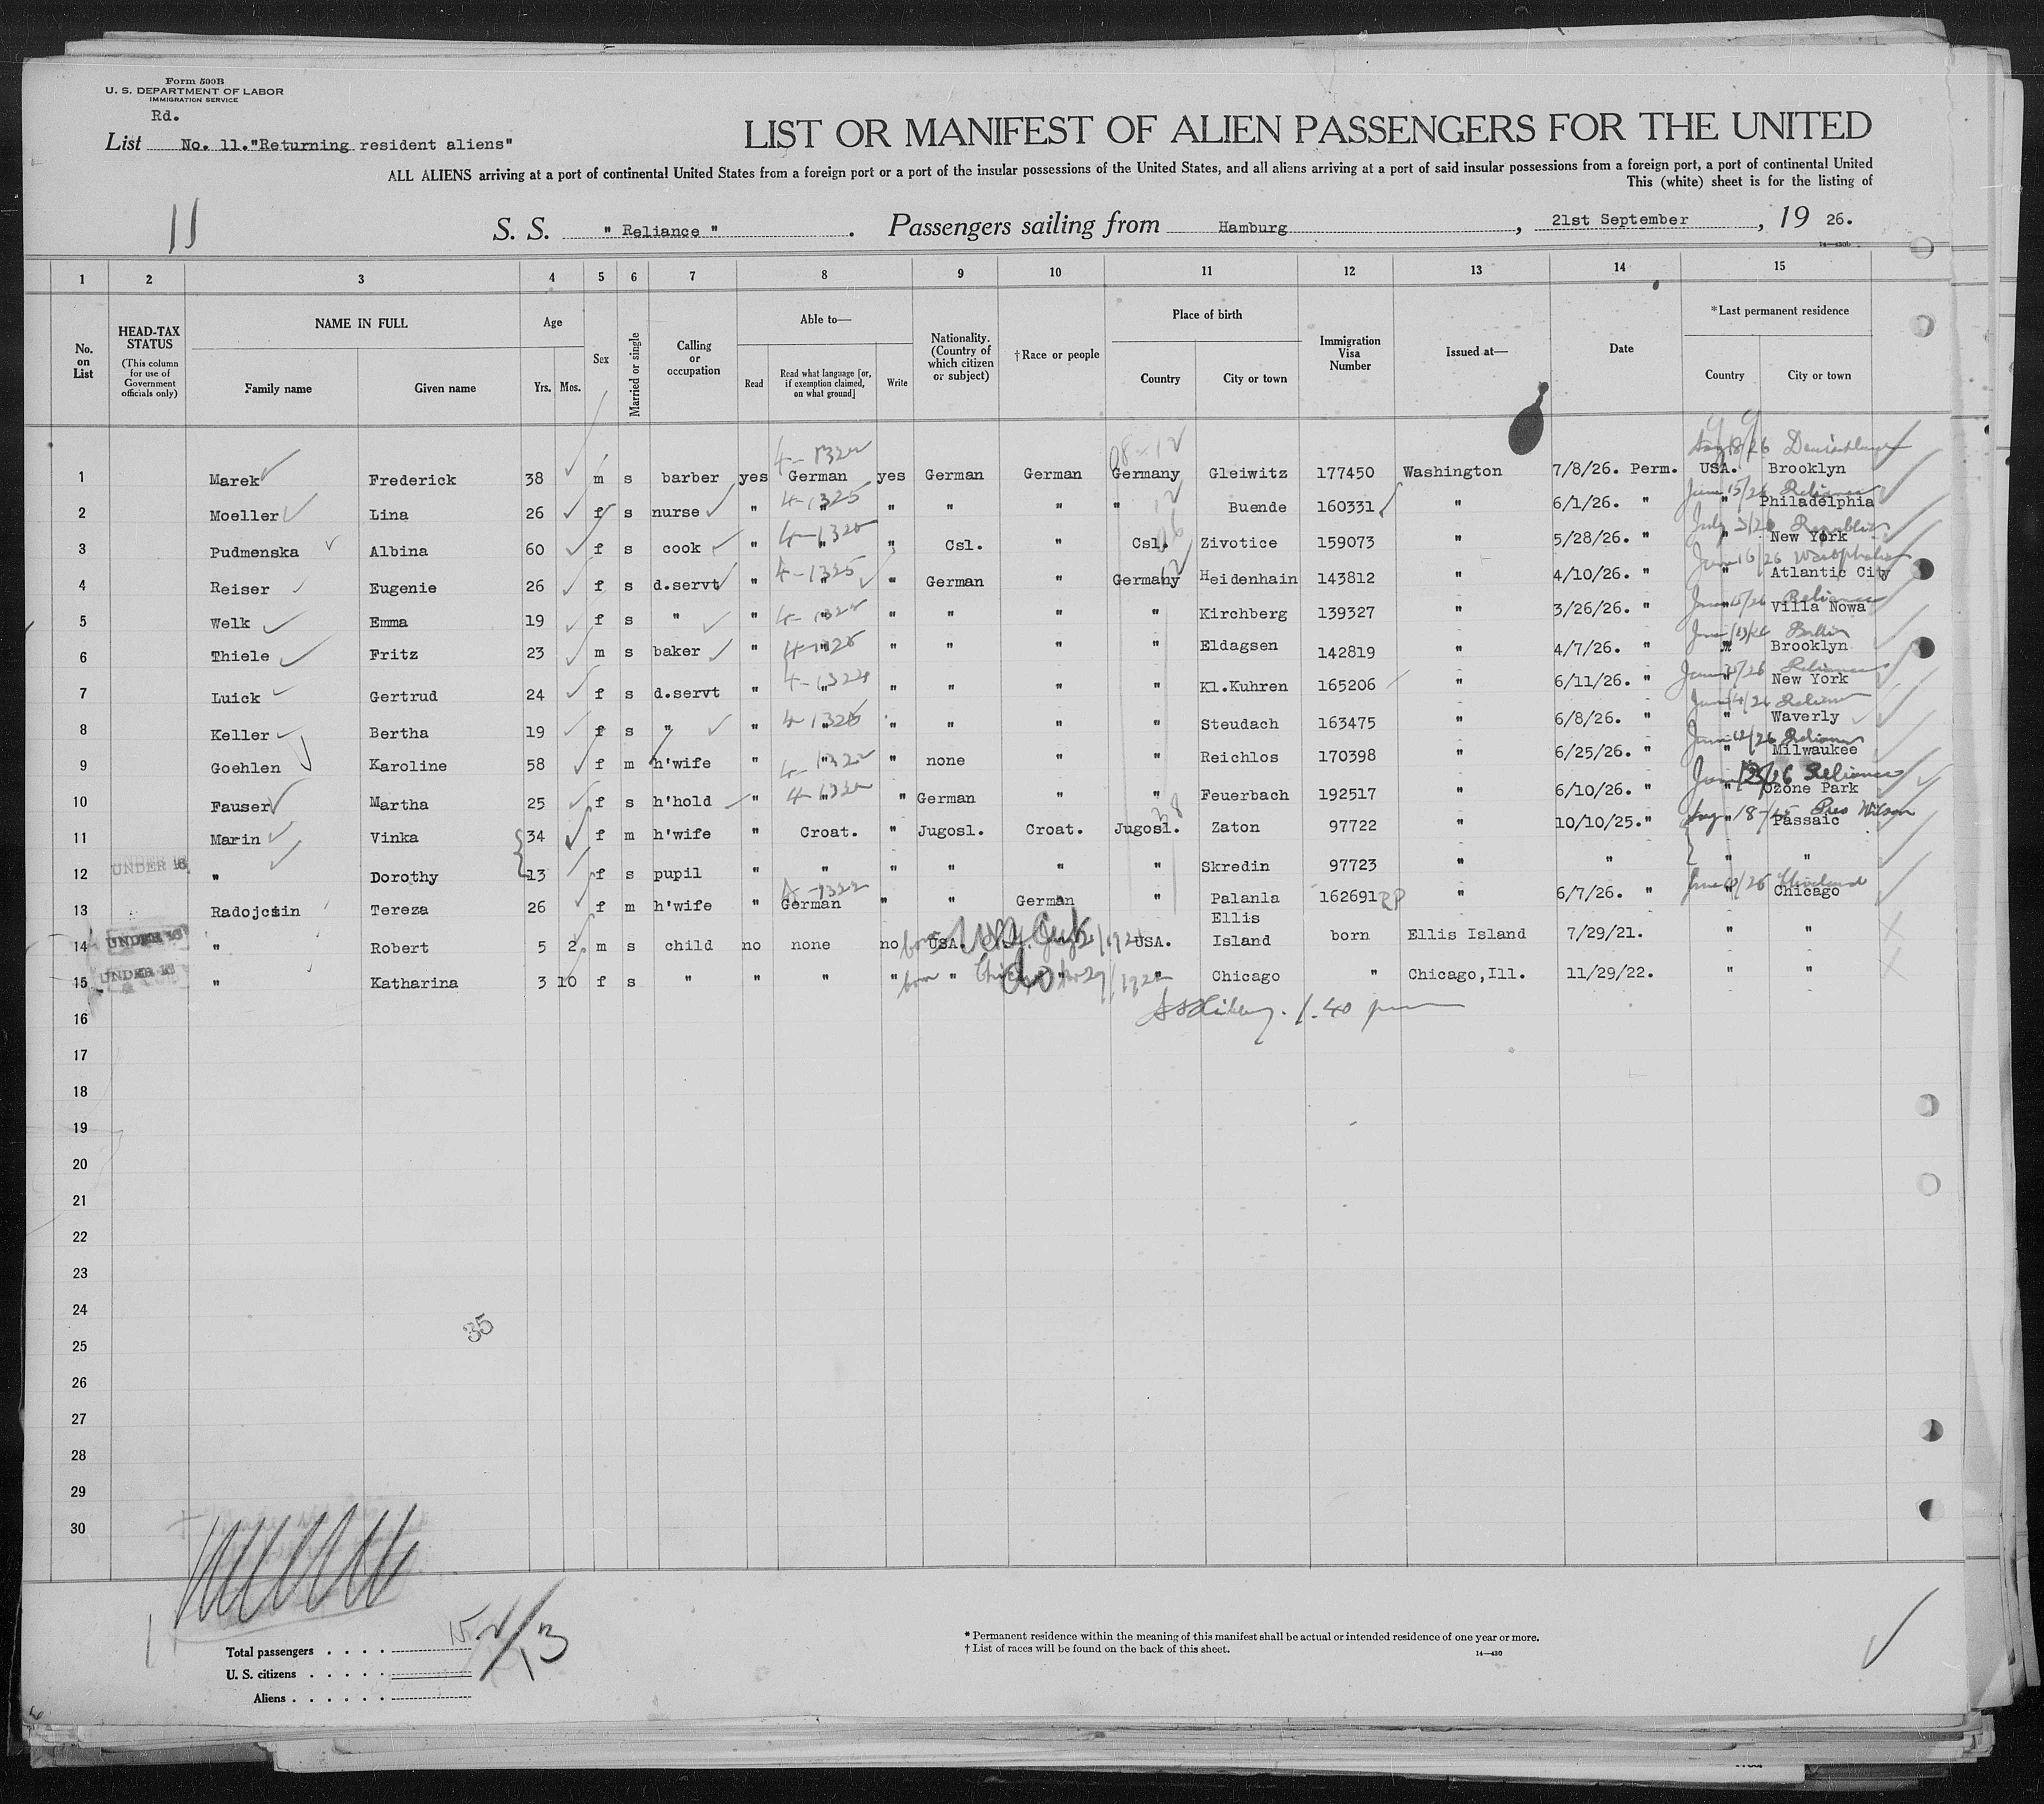 Form 500B
U. S. DEPARTMENT OF LABOR
IMMIGRATION SERVICE
Rd.
List No. 11."Returning resident aliens"
LIST OR MANIFEST OF ALIEN PASSENGERS FOR THE UNITED
ALL ALIENS arriving at a port of continental United States from a foreign port or a port of the insular possessions of the United States, and all aliens arriving at a port of said insular possessions from a foreign port, a port of continental United
This (white) sheet is for the listing of
11
S. S. " Reliance " . Passengers sailing from Hamburg , 21st September , 19 26.
14—430b
1 2 3 4 5 6 7 8 9 10 11 12 13 14 15
No. on List
HEAD-TAX STATUS
(This column for use of Government officials only)
NAME IN FULL
Family name Given name
Age
Yrs. Mos.
Sex
Married or single
Calling or occupation
Able to—
Read
Read what language [or, if exemption claimed, on what ground]
Write
Nationality. (Country of which citizen or subject)
†Race or people
Place of birth
Country City or town
Immigration Visa Number
Issued at—
Date
*Last permanent residence
Country City or town
1 Marek Frederick 38 m s barber yes German yes German German Germany Gleiwitz 177450 Washington 7/8/26. Perm. USA. Brooklyn
2 Moeller Lina 26 f s nurse " " " " " " Buende 160331 " 6/1/26. " " Philadelphia
3 Pudmenska Albina 60 f s cook " " " Csl. " Csl. Zivotice 159073 " 5/28/26. " " New York
4 Reiser Eugenie 26 f s d.servt " " " German " Germany Heidenhain 143812 " 4/10/26. " " Atlantic City
5 Welk Emma 19 f s " " " " " " " Kirchberg 139327 " 3/26/26. " " Villa Nowa
6 Thiele Fritz 23 m s baker " " " " " " Eldagsen 142819 " 4/7/26. " " Brooklyn
7 Luick Gertrud 24 f s d.servt " " " " " " Kl.Kuhren 165206 " 6/11/26. " " New York
8 Keller Bertha 19 f s " " " " " " " Steudach 163475 " 6/8/26. " " Waverly
9 Goehlen Karoline 58 f m h'wife " " " none " " Reichlos 170398 " 6/25/26. " " Milwaukee
10 Fauser Martha 25 f s h'hold " " " German " " Feuerbach 192517 " 6/10/26. " " Ozone Park
11 Marin Vinka 34 f m h'wife " Croat. " Jugosl. Croat. Jugosl. Zaton 97722 " 10/10/25." " Passaic
12 UNDER 16 " Dorothy 13 f s pupil " " " " " " Skredin 97723 " " " "
13 Radojcsin Tereza 26 f m h'wife " German " " German " Palanla 162691 RP " 6/7/26. " " Chicago
14 UNDER 16 " Robert 5 2 m s child no none no USA. USA. Ellis Island born Ellis Island 7/29/21. " "
15 UNDER 16 " Katharina 3 10 f s " " " " " " " Chicago " Chicago,Ill. 11/29/22. " "
16
17
18
19
20
21
22
23
24
25
26
27
28
29
30
35
Total passengers . . . . 15
U. S. citizens . . . . .
Aliens . . . . . .
2/13
* Permanent residence within the meaning of this manifest shall be actual or intended residence of one year or more.
† List of races will be found on the back of this sheet.
14—430